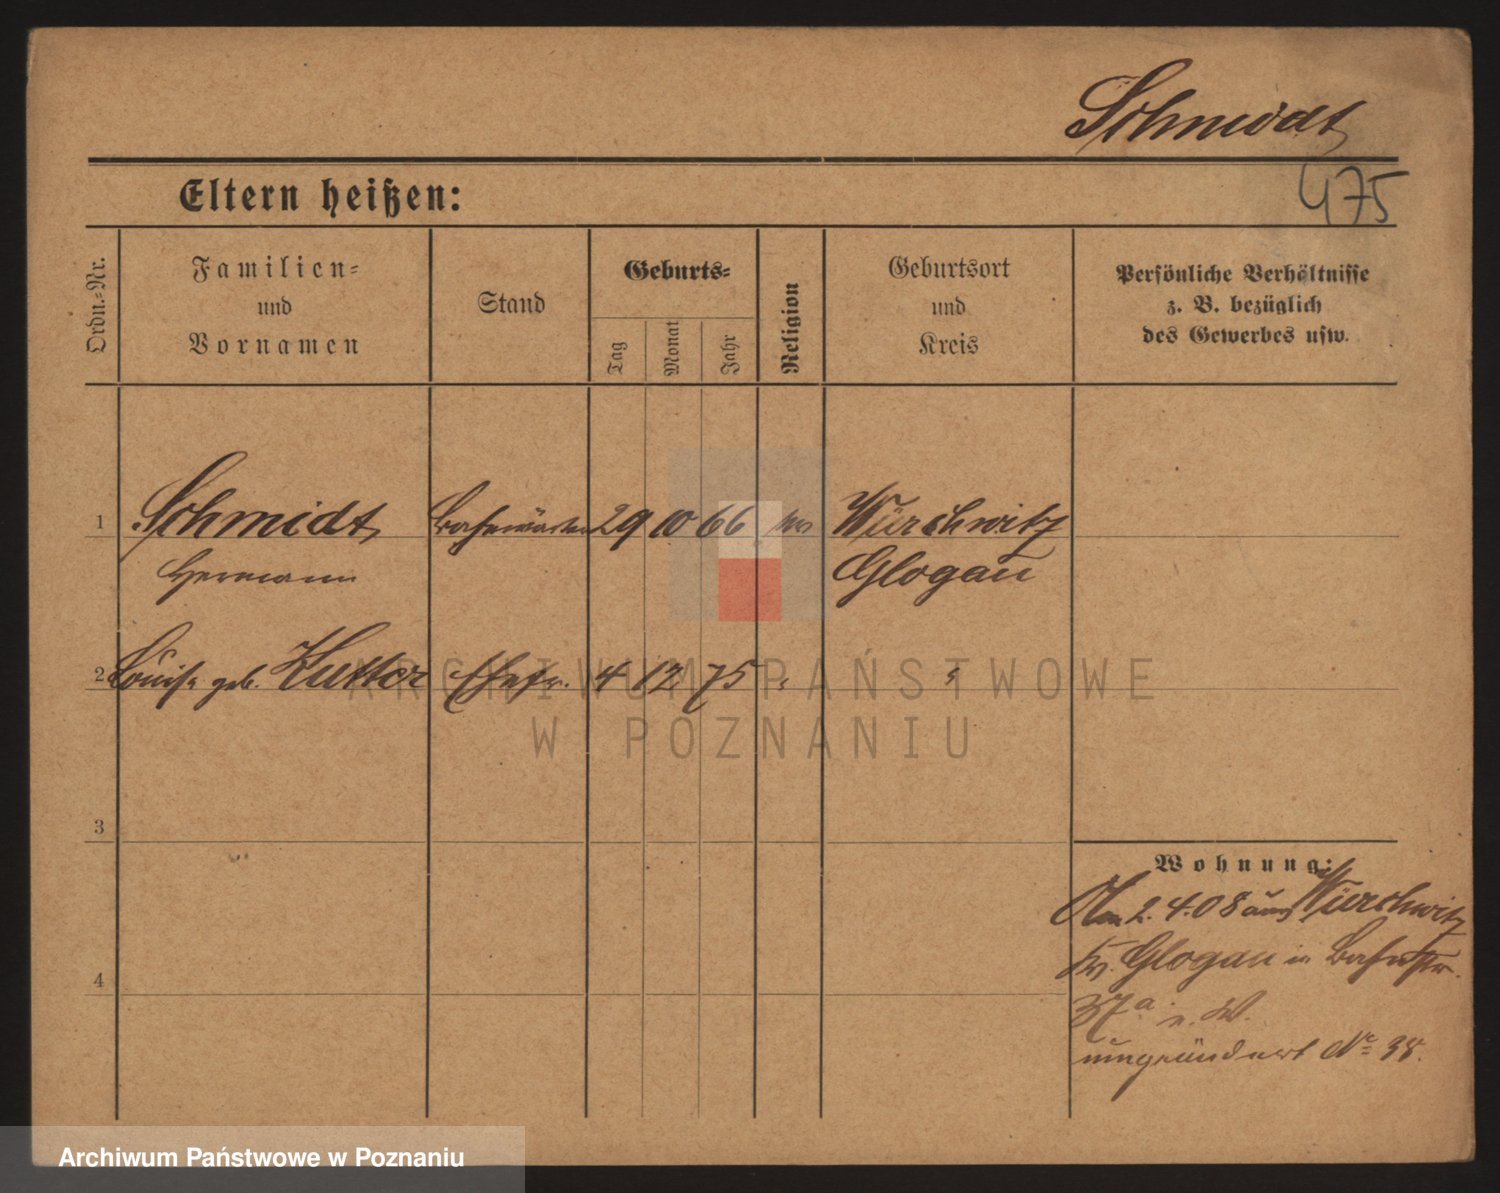 Schmidt
475
Eltern heißen:
Ordn.-Nr.
Familien-
und
Vornamen
Stand
Geburts-
Tag
Monat
Jahr
Religion
Geburtsort
und
Kreis
Persönliche Verhältnisse
z. B. bezüglich
des Gewerbes usw.
1 Schmidt, Bahnwärter 29 10 66 Würchwitz
Hermann Glogau
2 Louise geb. Kutter Ehefr. 4 12 75 " "
3
4
Wohnung:
Am 2.4.08 aus Würchwitz
Kr. Glogau in Bahnstr.
37a n. W.
umgeändert No 38.
ARCHIWUM PAŃSTWOWE
W POZNANIU
Archiwum Państwowe w Poznaniu